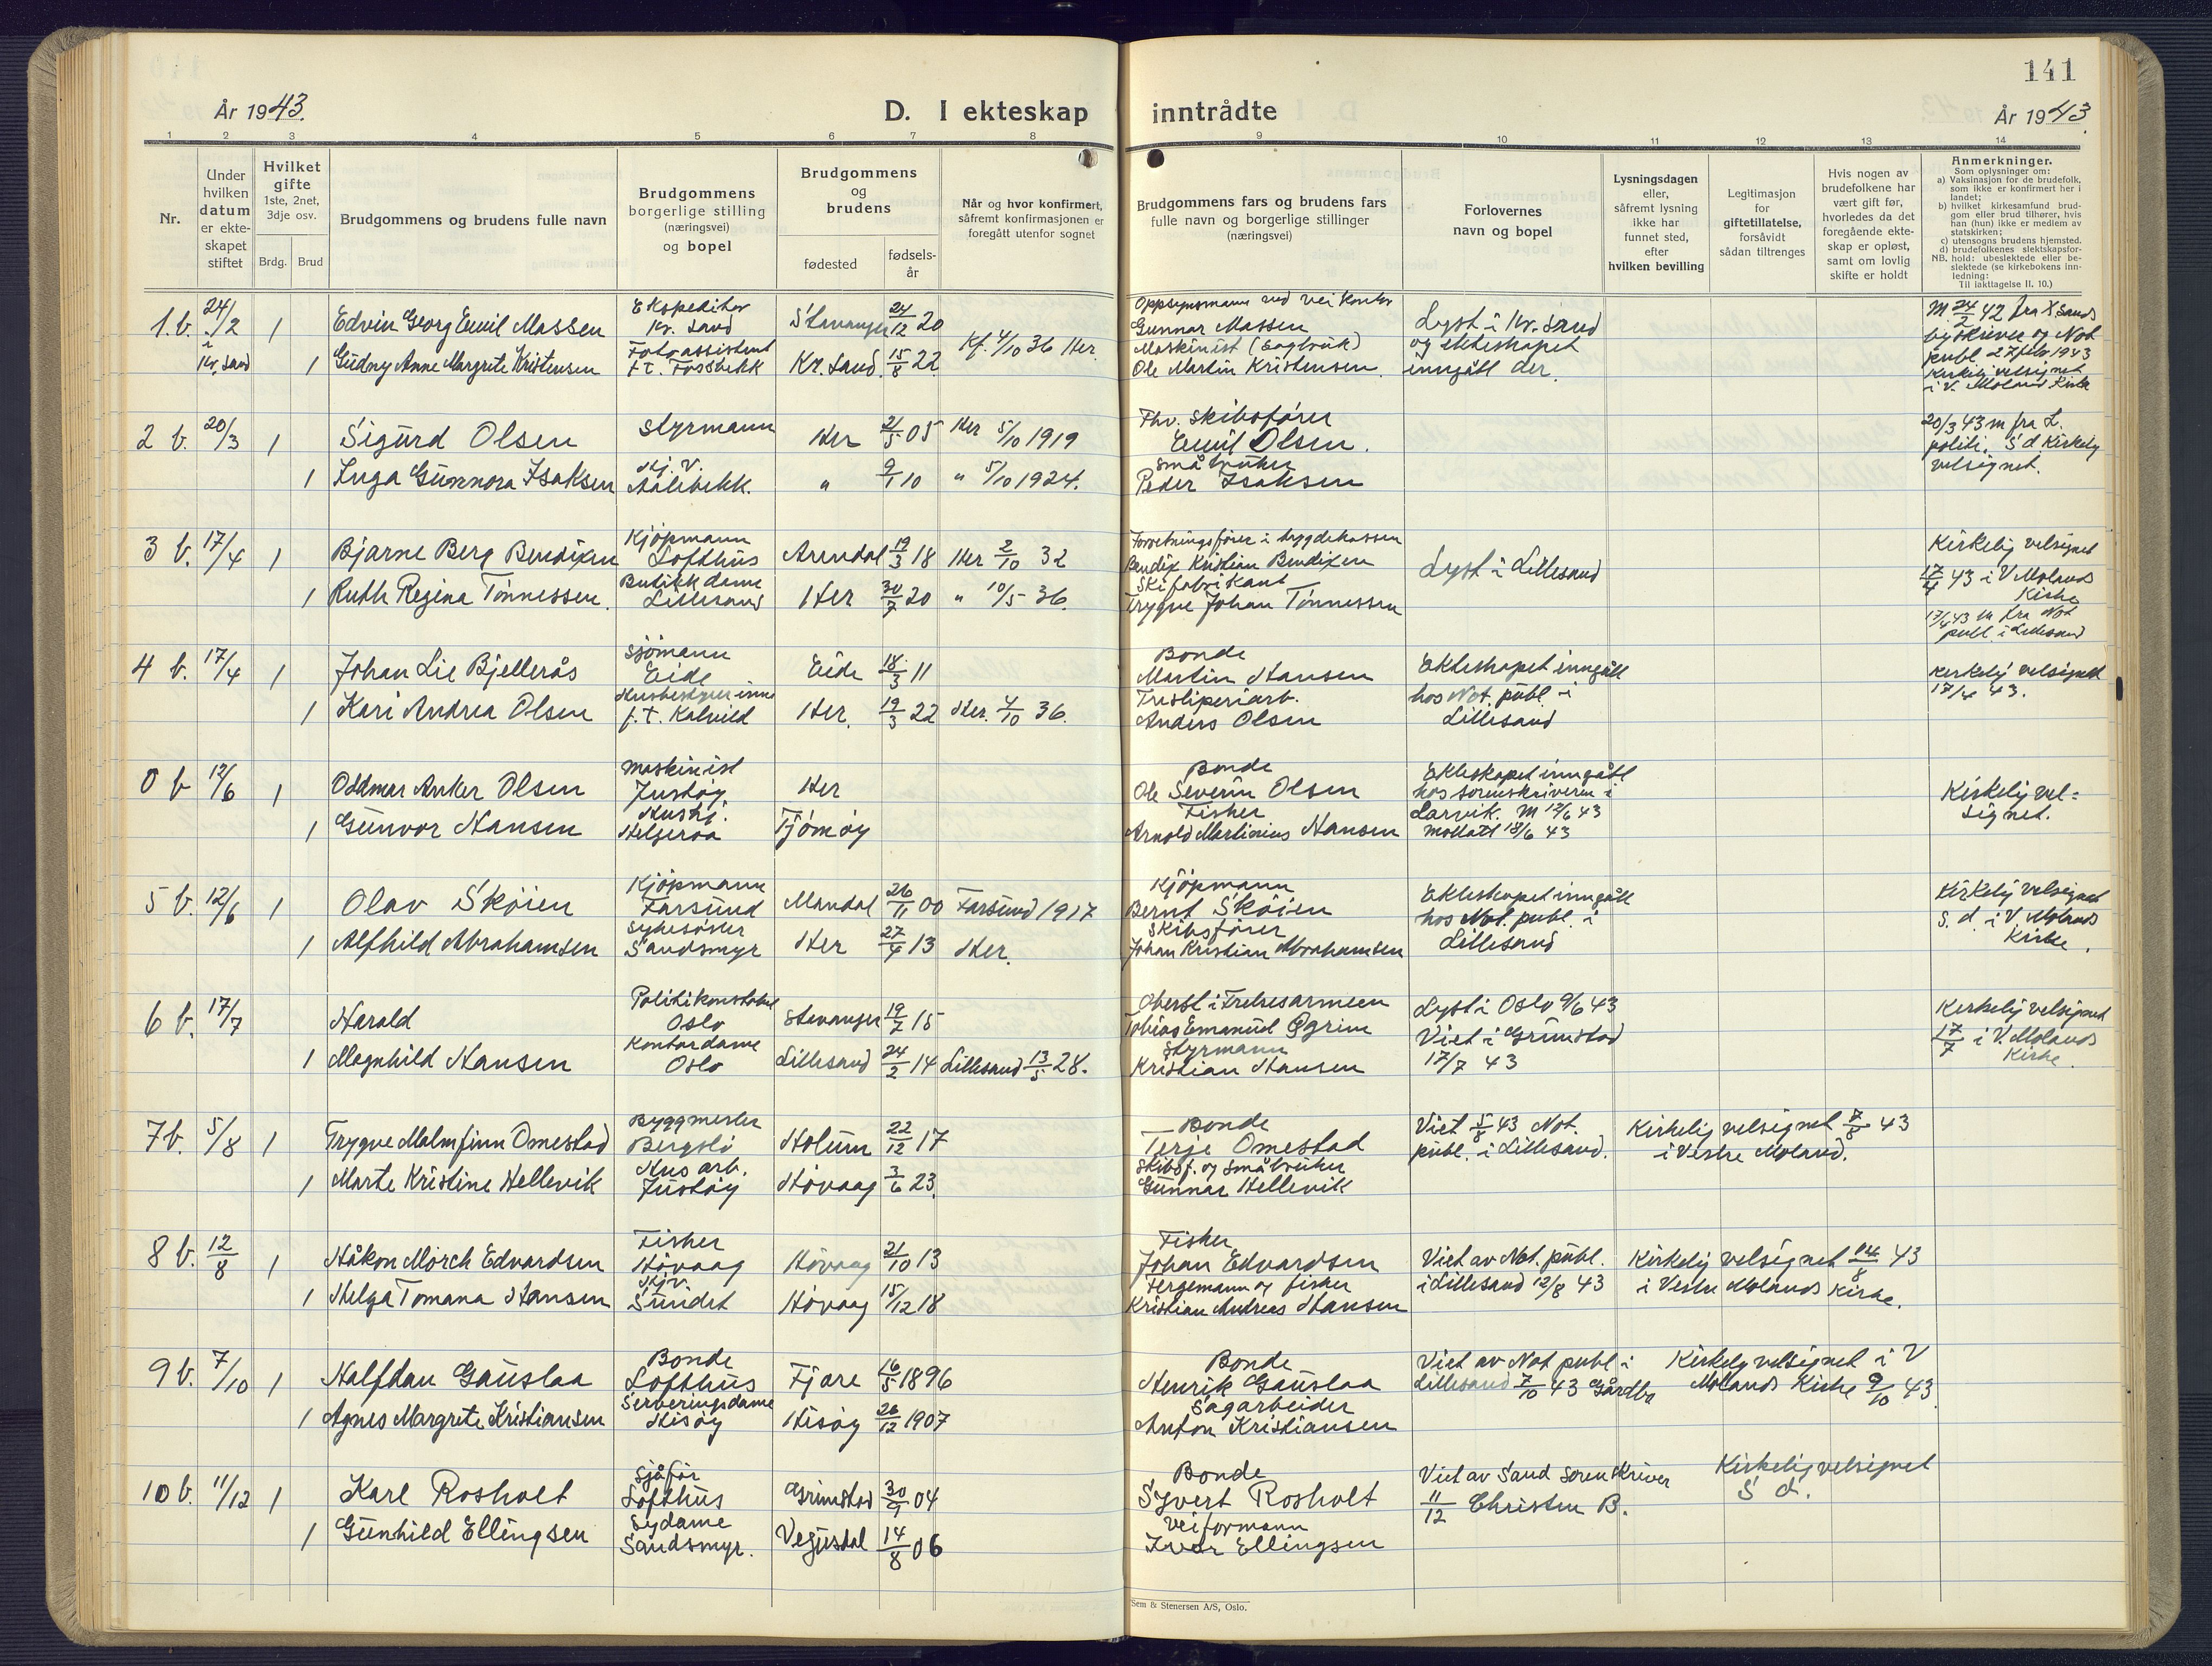 141
År 1943.
D. I ekteskap inntrådte
År 1943.
1 2 3 4 5 6 7 8 9 10 11 12 13 14
Nr.
Under hvilken datum er ekte-skapet stiftet
Hvilket gifte 1ste, 2net, 3dje osv.
Brdg. Brud
Brudgommens og brudens fulle navn
Brudgommens borgerlige stilling (næringsvei) og bopel
Brudgommens og brudens
fødested
fødsels-år
Når og hvor konfirmert, såfremt konfirmasjonen er foregått utenfor sognet
Brudgommens fars og brudens fars fulle navn og borgerlige stillinger (næringsvei)
Forlovernes navn og bopel
Lysningsdagen eller, såfremt lysning ikke har funnet sted, efter hvilken bevilling
Legitimasjon for giftetillatelse, forsåvidt sådan tiltrenges
Hvis nogen av brudefolkene har vært gift før, hvorledes da det foregående ekte-skap er opløst, samt om lovlig skifte er holdt
Anmerkninger.
Som oplysninger om:
a) Vaksinasjon for de brudefolk, som ikke er konfirmert her i landet;
b) hvilket kirkesamfund brud-gom eller brud tilhører, hvis han (hun) ikke er medlem av statskirken;
c) utensogns brudens hjemsted.
d) brudefolkenes slektskapsfor-hold: ubeslektede eller be-slektede (se kirkebokens inn-ledning:
NB.
Til iakttagelse II. 10.)
1. b. 24/2 1 Edvin Georg Emil Massen Ekspeditør Kr. Sand Stavanger 24/12 20
i Kr. Sand 1 Gudny Anne Margrete Kristensen Fotoassistent f.t. Fossbekk Kr. Sand. 15/8 22 Kf. 4/10 36 Her.
Oppsynsmann ved veikontor
Gunnar Massen
Maskinist
Ole Martin Kristensen.
Lyst i Kr. Sand
og ekteskapet
inngått der.
M 24/2 42 fra X Sands
byskriver og Not
publ 27 feb 1943
Kirkelig velsignet
i V. Moland Kirke
2 b. 20/3 1 Sigurd Olsen Styrmann Her 21/5 05 Her 5/10 1919
1 Inga Gunnora Isaksen Hj. V. Aalebekk. " 9/1 10 " 5/10 1924.
Fhv. skibsfører
Emil Olsen.
Småbruker
Peder Isaksen
20/3 43 m fra L.
politi. S d Kirkelig
velsignet.
3 b. 17/4 1 Bjarne Berg Bendixen Kjøpmann Lofthus Arendal 19/3 18 Her 2/10 32
1 Ruth Regina Tønnessen. Butikkdame Lillesand Her 30/7 20 " 10/5 36.
Forretningsfører i trygdekassen
Bendix Kristian Bendixen
Skifabrikant
Trygve Johan Tønnessen
Lyst i Lillesand
Kirkelig velsignet
17/4 43 i V Molands
Kirke
17/4 43 M fra Not
publ. i Lillesand
4 b. 17/4 1 Johan Lie Bjellerås Sjømann Eide Eide 18/3 11
1 Kari Andrea Olsen Husbestyrerinne f.t. Kalvild Her. 19/3 22 Her. 4/10 36.
Bonde
Martin Hansen
Tresliperiarb.
Anders Olsen
Ekteskapet inngått
hos Not. publ. i
Lillesand
Kirkelig velsignet
17/4 43.
0 b 12/6 1 Oddmar Anker Olsen Maskinist Justøy Her
1 Gunvor Hansen Hushj. Helgeroa Tjømøy
Bonde
Ole Severin Olsen
Fisker
Arnold Martinius Hansen
Ekteskapet inngått
hos sorenskriveren i
Larvik. M 12/6 43
mottatt 18/6 43
Kirkelig vel=
signet.
5 b. 12/6 1 Olav Skøien Kjøpmann Farsund Mandal 26/11 00 Farsund 1917
1 Alfhild Abrahamsen Sykesøster Sandsmyr Her 27/4 13 Her.
Kjøpmann
Bernt Skøien
Skibsfører
Johan Kristian Abrahamsen
Ekteskapet inngått
hos Not. publ. i
Lillesand
Kirkelig velsignet
S. d. i V. Molands
Kirke.
6 b. 17/7 Harald Politikonstabel Oslo Stavanger 19/7 15
1 Magnhild Hansen Kontordame Oslo Lillesand 24/2 14 Lillesand 13/5 28.
Oberst i Frelsesarmeen
Tobias Emanuel Øgrim
Styrmann
Kristian Hansen
Lyst i Oslo 9/6 43
Viet i Grimstad
17/7 43
Kirkelig velsignet
17/7 i V. Molands
Kirke.
7 b. 5/8 1 Trygve Malmfinn Omestad Byggmester Bergsli Holum 22/12 17
1 Marte Kristine Hellevik Hus arb. Justøy Høvaag 3/6 23.
Bonde
Terje Omestad
Skibsf. og småbruker
Gunnar Hellevik
Viet 5/8 43 Not.
publ. i Lillesand.
Kirkelig velsignet 7/8 43
i Vestre Moland.
8 b. 12/8 1 Håkon Mørch Edvardsen Fisker Høvaag Høvaag 21/10 13
1 Helga Tomana Hansen Hjv. Sundet Høvaag 15/12 18
Fisker
Johan Edvardsen
Fergemann og fisker
Kristian Andreas Hansen
Viet av Not. publ.
i Lillesand 12/8 43
Kirkelig velsignet 14/8 43
i Vestre Molands Kirke.
9 b. 7/10 1 Halfdan Gauslaa Bonde Lofthus Fjære 16/5 1896
1 Agnes Margrete Kristiansen Serveringsdame Hisøy Hisøy 26/12 1907
Bonde
Henrik Gauslaa
Sagarbeider
Anton Kristiansen
Viet av Not publ i
Lillesand 7/10 43 Gårdbr
Kirkelig velsignet i V
Molands Kirke 9/10 43.
10 b. 11/12 1 Karl Rosholt Sjåfør Lofthus Grimstad 30/9 04
1 Gunhild Ellingsen Sydame Sandsmyr. Vegusdal 14/8 06
Bonde
Syvert Rosholt
Veiformann
Ivar Ellingsen
Viet av Sand Sorenskriver
11/12 Christen B.
Kirkelig velsignet
S d.
Sem & Stenersen A/S, Oslo.